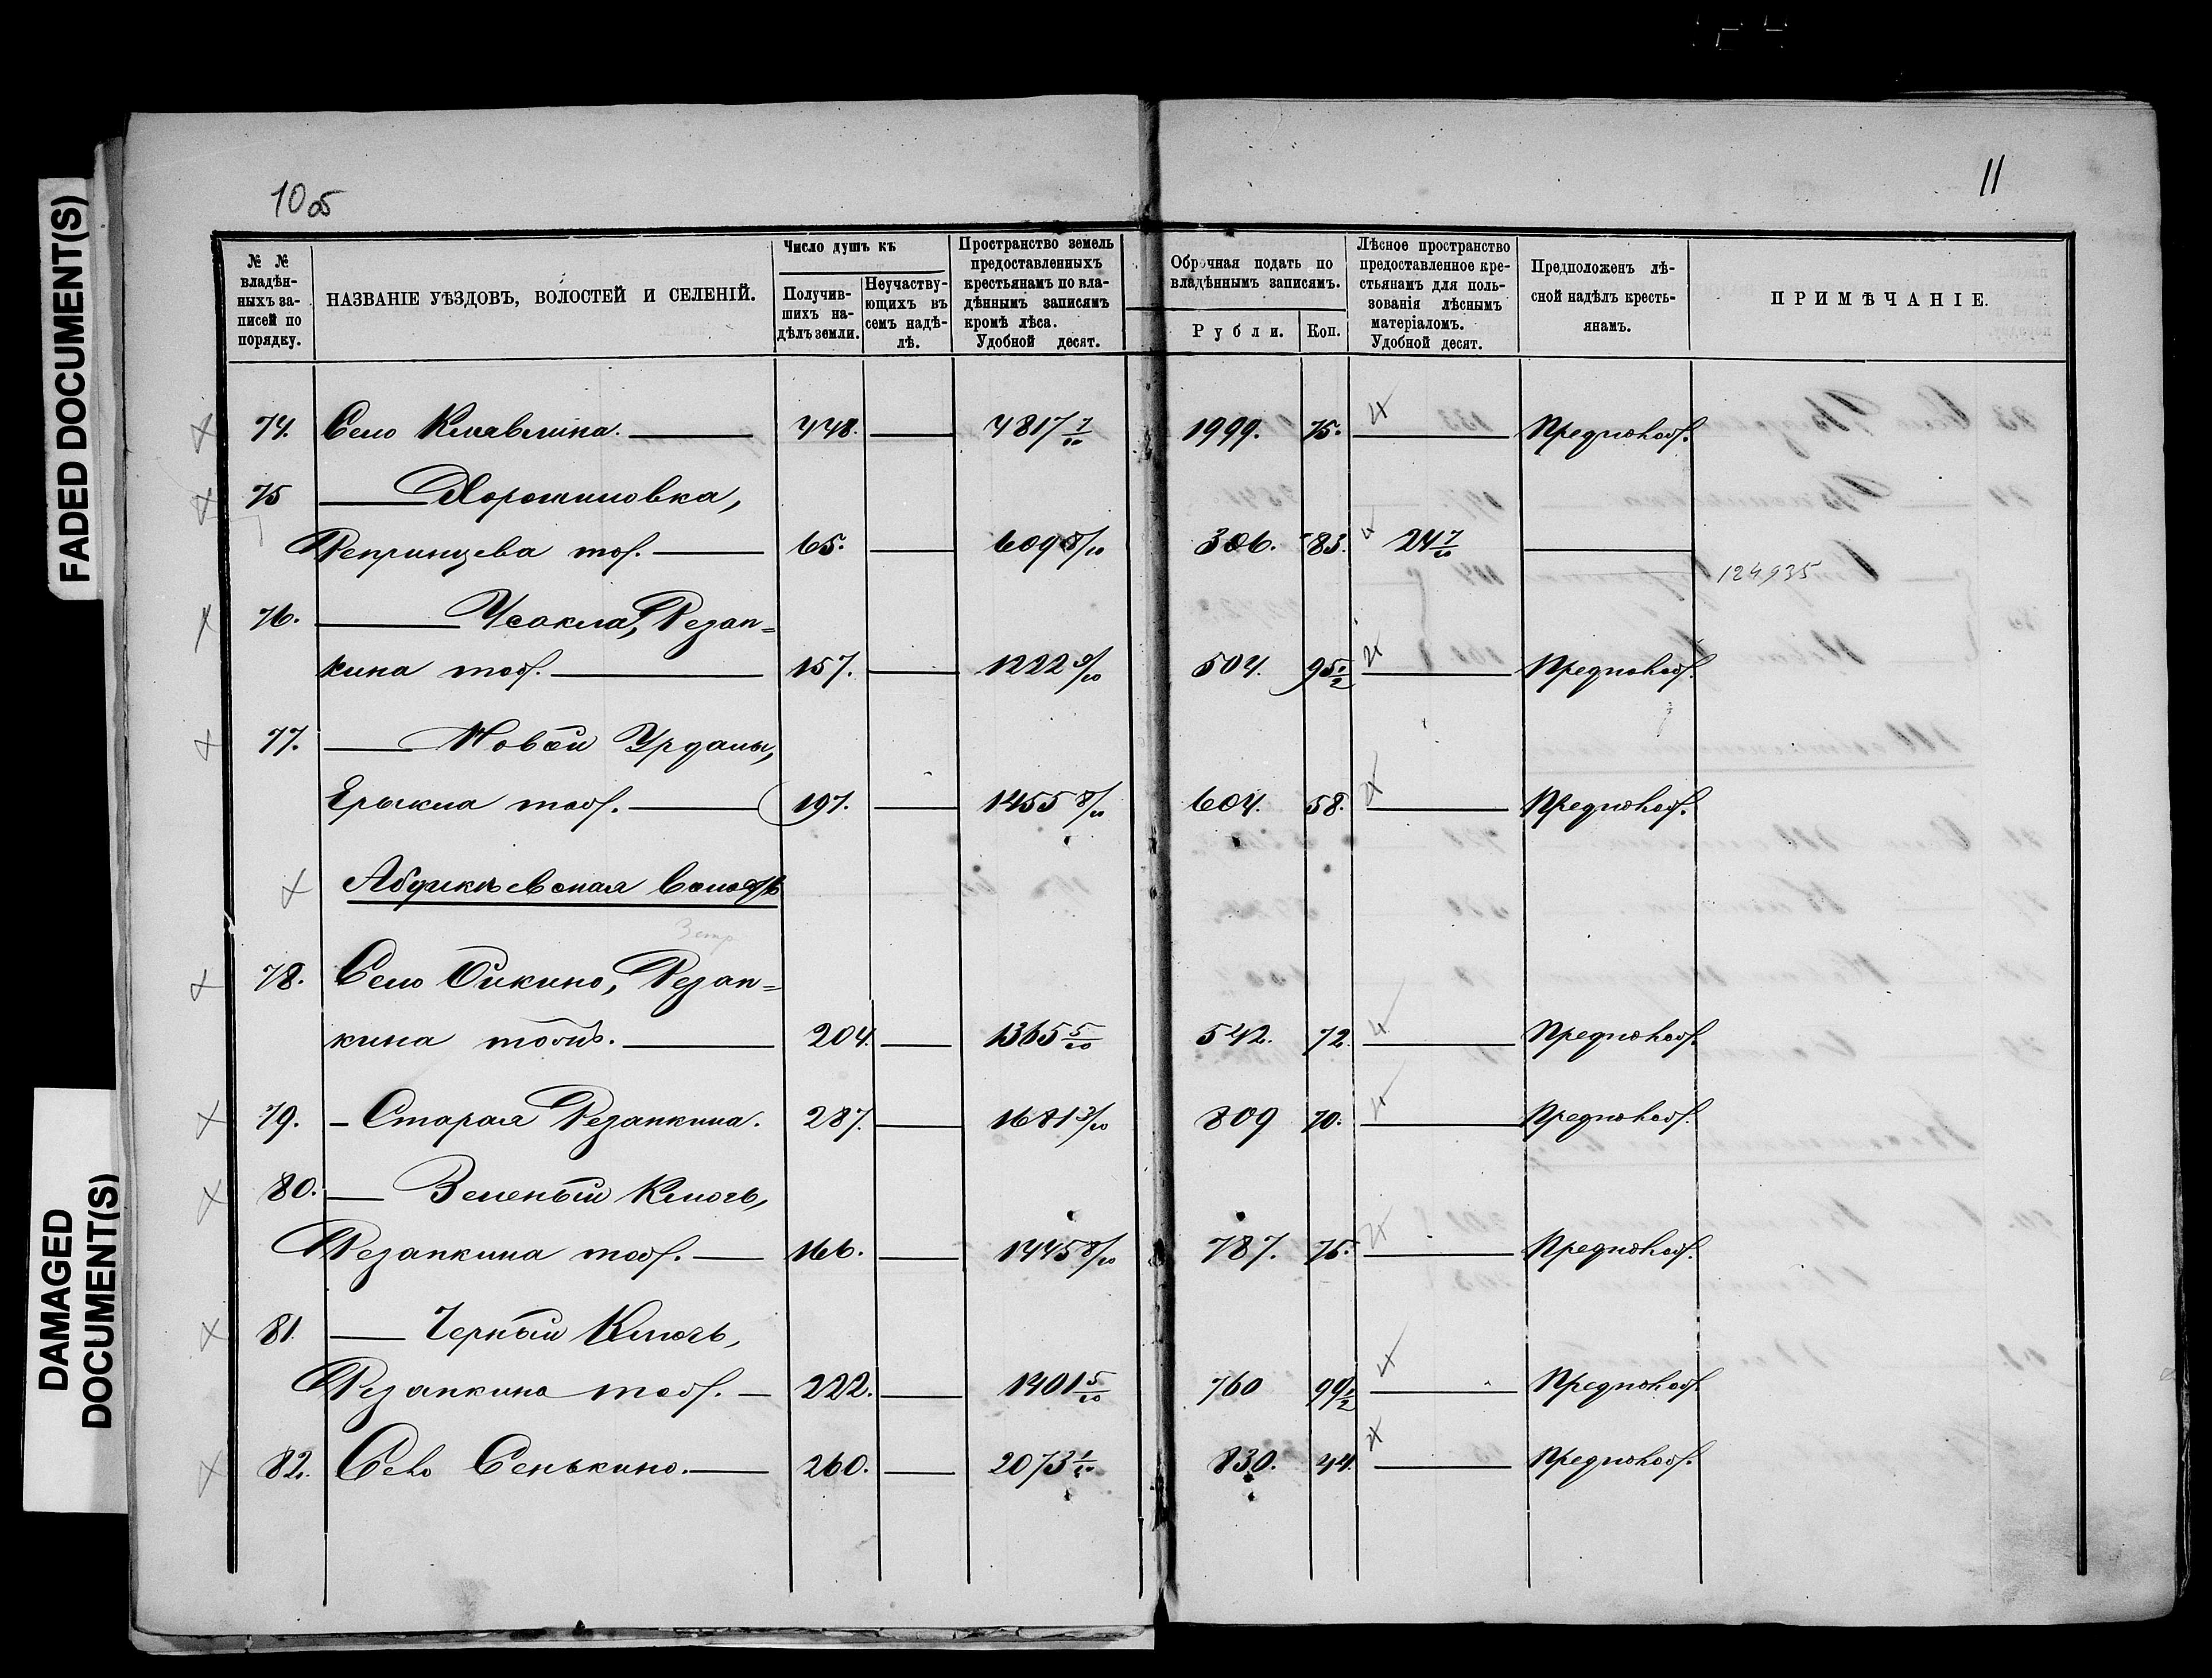 FADED DOCUMENT(S)
DAMAGED DOCUMENT(S)
10 об
11
№ № владѣнныхъ записей по порядку.
НАЗВАНІЕ УѢЗДОВЪ, ВОЛОСТЕЙ И СЕЛЕНІЙ.
Число душъ къ
Получившихъ надѣлъ земли.
Неучаствующихъ въ семъ надѣлѣ.
Пространство земель предоставленныхъ крестьянамъ по владѣннымъ записямъ кромѣ лѣса. Удобной десят.
Оброчная подать по владѣннымъ записямъ.
Рубли. Коп.
Лѣсное пространство предоставленное крестьянамъ для пользованія лѣснымъ матеріаломъ. Удобной десят.
Предположенъ лѣсной надѣлъ крестьянамъ.
ПРИМѢЧАНІЕ.
74. Село Клявлина. 448. 4817 7/10 1999. 75. Предполож.
75 Хорошиловка,
Репринцева тож. 65. 609 8/10 306. 83. 24 7/10
124935
76. Усакла, Резап=
кина тож. 157. 1222 9/10 504. 95 1/2 Предполож.
77. Новой Урдалы,
Ерыкла тож. 197. 1455 8/10 604. 58. Предполож.
Абдикѣевская волость
78. Село Сикино, Резап=
кина тожъ. 204. 1365 5/10 542. 72. Предполож.
79. Старая Резапкина. 287. 1681 3/10 809 70. Предполож.
80. Зеленый Ключь,
Резапкина тож. 166. 1445 8/10 787. 75. Предполож.
81. Черный Ключь,
Резапкина тож. 222. 1401 5/10 760 99 1/2 Предполож.
82. Село Сенькино. 260. 2073 1/10 830. 44. Предполож.